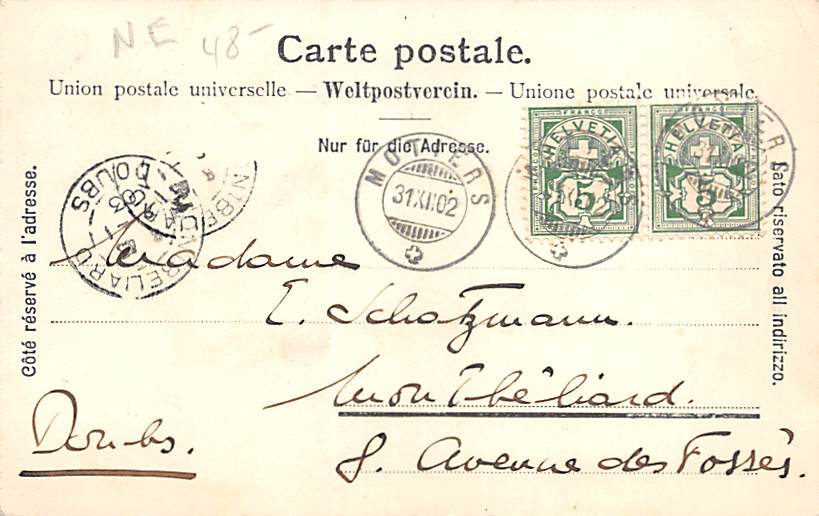 NE 48-
Carte postale.
Union postale universelle — Weltpostverein. — Unione postale universale.
Nur für die Adresse.
Côté réservé à l'adresse.
Lato riservato all indirizzo.
MOTIERS
31.XII.02
FRANCO
HELVETIA
5
FRANCO
HELVETIA
5
DOUBS
Madame
E. Schatzmann.
Montbéliard.
Doubs.
8. Avenue des Fossés.